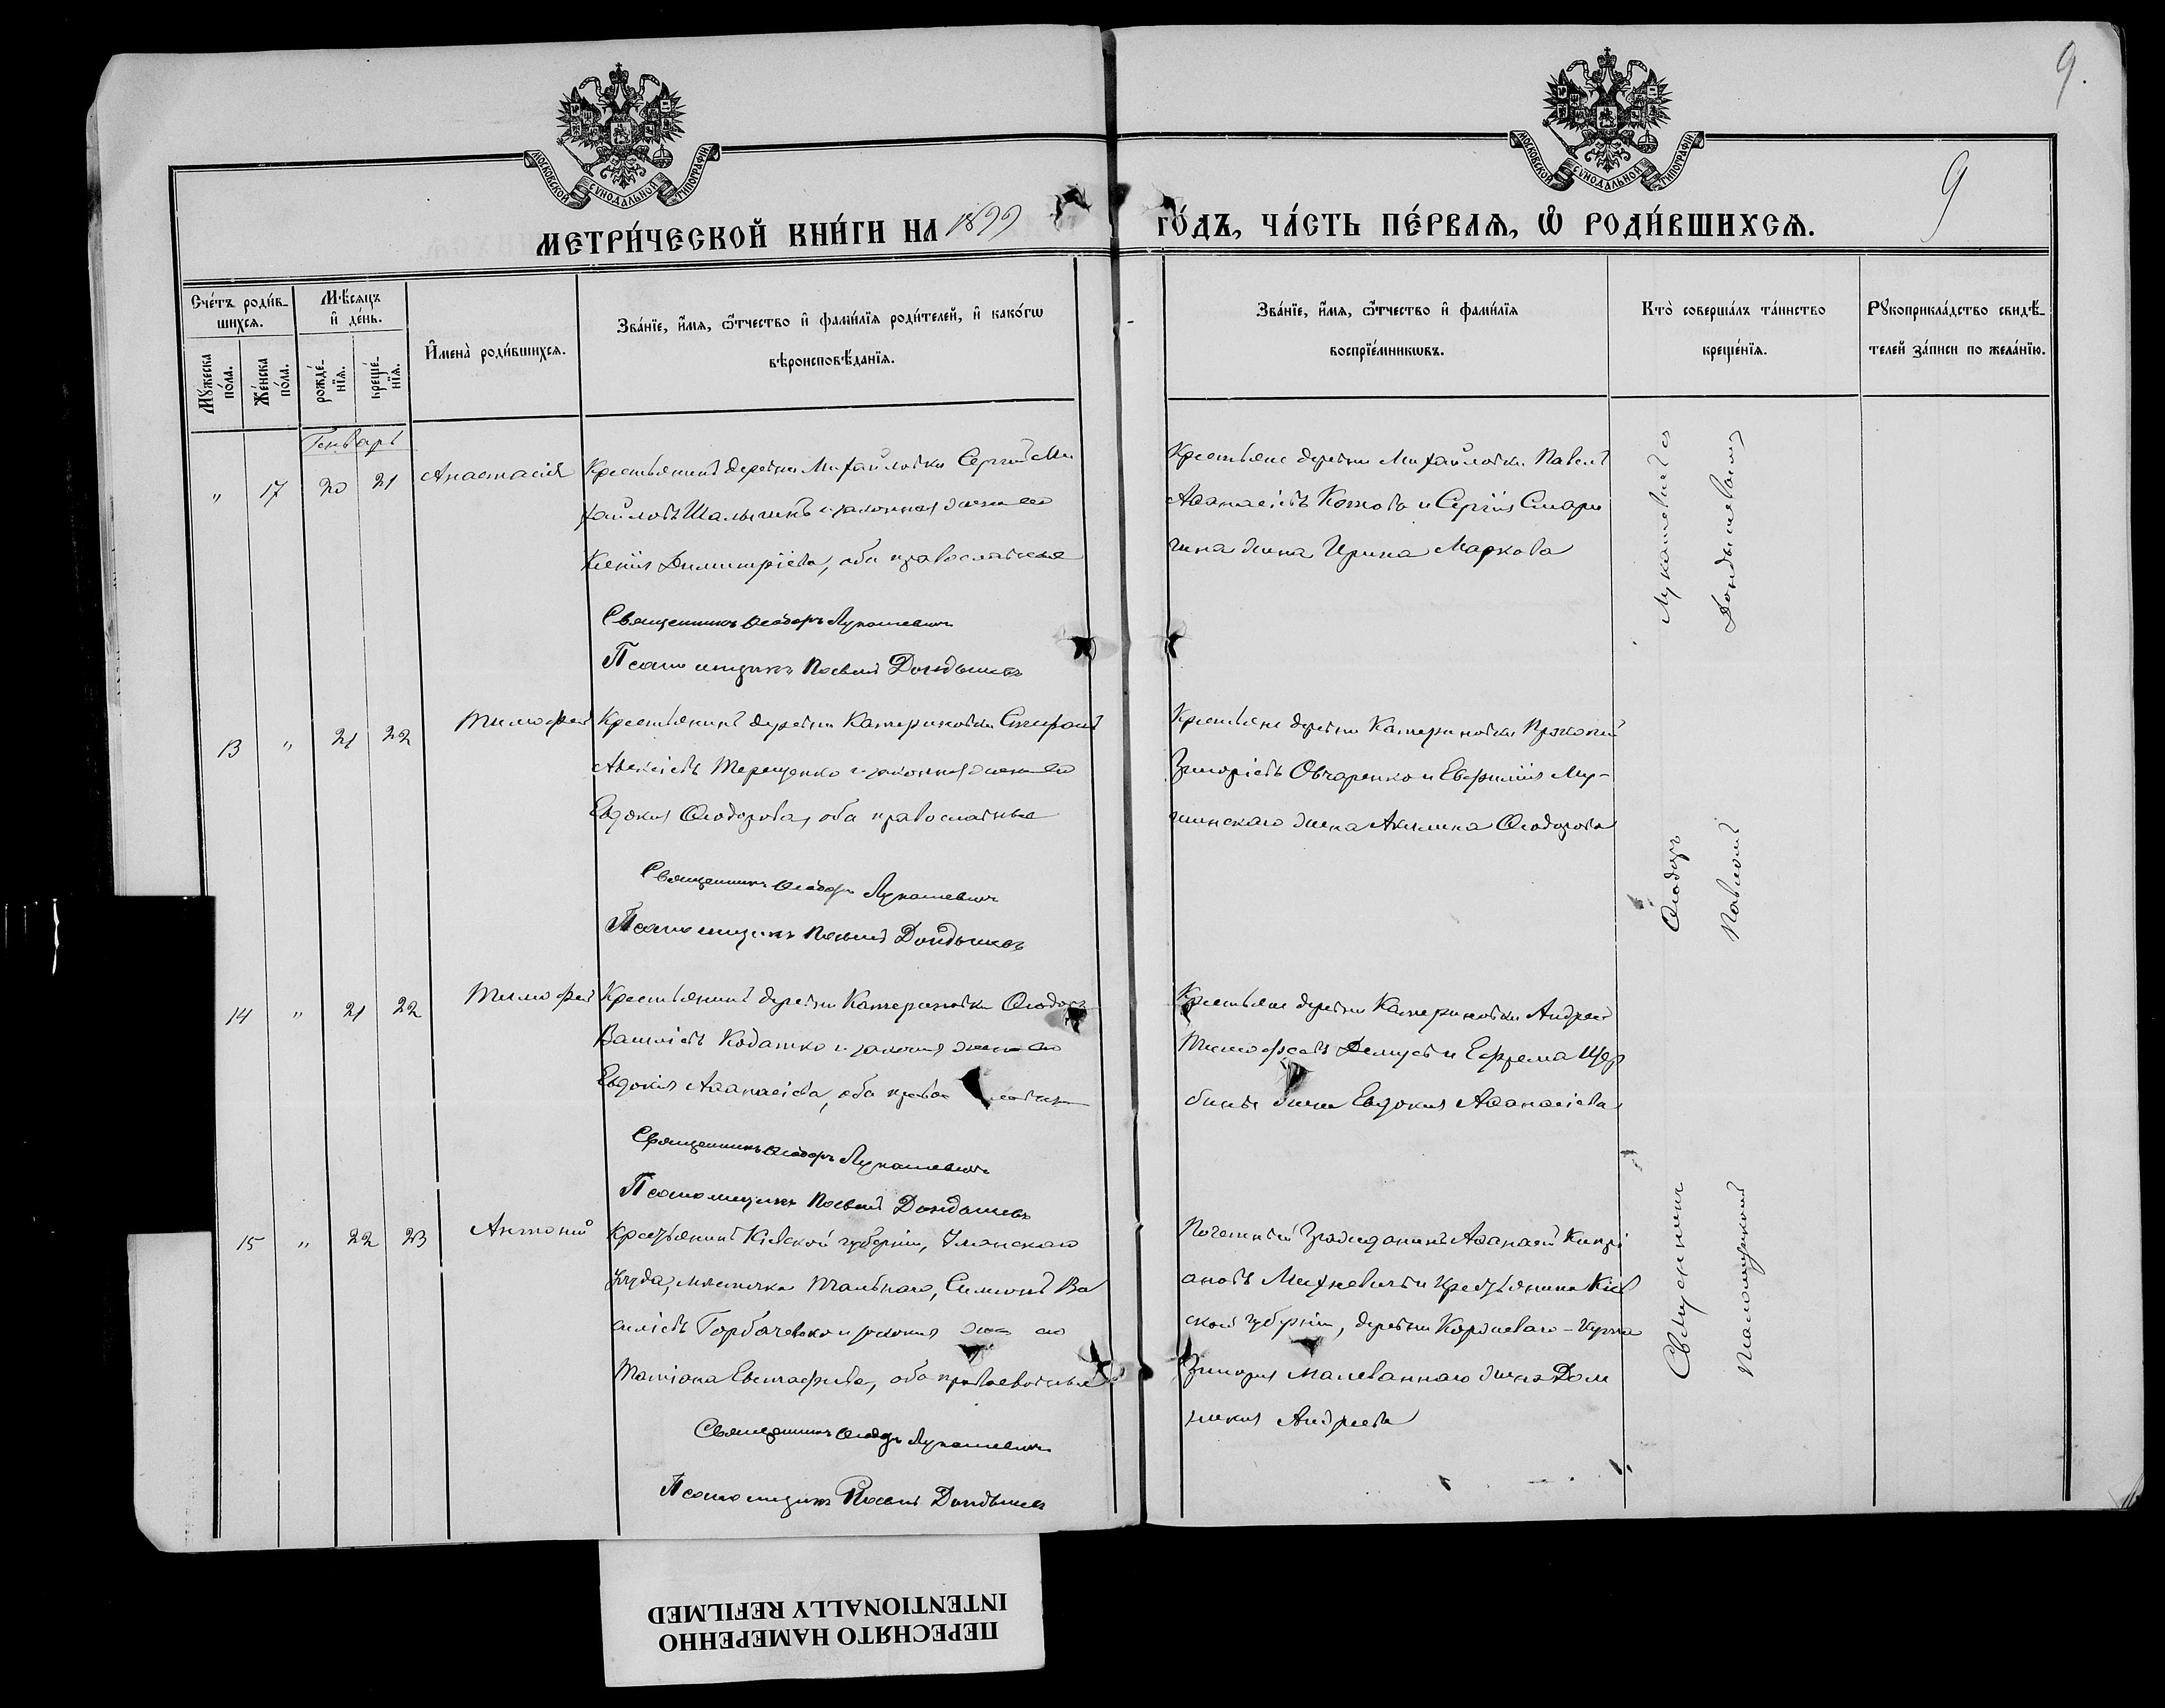 9.
9
МОСКОВСКОЙ СѴНОДАЛЬНОЙ ТИПОГРАФІИ
МОСКОВСКОЙ СѴНОДАЛЬНОЙ ТИПОГРАФІИ
МЕТРИ́ЧЕСКОЙ КНИ́ГИ НА 1899 ГО́ДЪ, ЧА́СТЬ ПЕ́РВАѦ, Ѡ҆ РОДИ́ВШИХСѦ.
Сче́тъ роди́в-
шихсѧ.
Мꙋ́жеска по́ла.
Же́нска по́ла.
Мѣ́сѧцъ
и҆ де́нь.
рожде́-нїѧ.
креще́-нїѧ.
И҆мена̀ роди́вшихсѧ.
Зва́нїе, и҆́мѧ, ѻ҆́тчество и҆ фами́лїѧ роди́телей, и҆ како́гѡ
вѣроисповѣ́данїѧ.
Зва́нїе, и҆́мѧ, ѻ҆́тчество и҆ фами́лїѧ
воспрїе́мникѡвъ.
Кто̀ соверша́лъ та́инство
креще́нїѧ.
Рꙋкоприкла́дство свидѣ́-
телей за́писи по жела́нїю.
Генварь
" 17 20 21 Анастасія
Крестьянинъ деревни Михайловки Сергій Ми
хайловъ Шалыгинъ и законная жена его
Ксенія Димитріева, оба православные
Священникъ Ѳеодоръ Лукашевичъ
Псаломщикъ Павелъ Дондышевъ
Крестьяне деревни Михайловки Павелъ
Аѳанасіевъ и Сергія
жена Ирина Маркова
13 " 21 22 Тимофей
Крестьянинъ деревни Катериновки Стефанъ
Алексіевъ Терещенко и законная жена его
Евдокія Ѳеодорова, оба православные
Священникъ Ѳеодоръ Лукашевичъ
Псаломщикъ Павелъ Дондышевъ
Крестьяне деревни Катериновки Прокопій
Григоріевъ Овчаренко и Евфимія
жена Акилина Ѳеодорова
14 " 21 22 Тимофей
Крестьянинъ деревни Катериновки Ѳеодоръ
Василіевъ Кодатко и законная жена его
Евдокія Аѳанасіева, оба православные
Священникъ Ѳеодоръ Лукашевичъ
Псаломщикъ Павелъ Дондышевъ
Крестьяне деревни Катериновки Андрей
Тимофеевъ и Ефрема Щер
бины жена Евдокія Аѳанасіева
15 " 22 23 Антоній
Крестьянинъ Кіевской губерніи, Уманскаго
уѣзда, мѣстечка Тального, Симеонъ Ва
силіевъ Горбачевско и законная жена его
Татіана Евстафіева, оба православные
Священникъ Ѳеодоръ Лукашевичъ
Псаломщикъ Павелъ Дондышевъ
Почетный Гражданинъ Аѳанасій Кипрі
ановъ Михневичъ и крестьянина Кіев
ской губерніи, деревни
Григорія Малеваннаго жена Дом
никія Андреева
Священникъ Ѳеодоръ Лукашевичъ съ
Псаломщикомъ Павломъ Дондышевымъ
ПЕРЕСНЯТО НАМЕРЕННО
INTENTIONALLY REFILMED